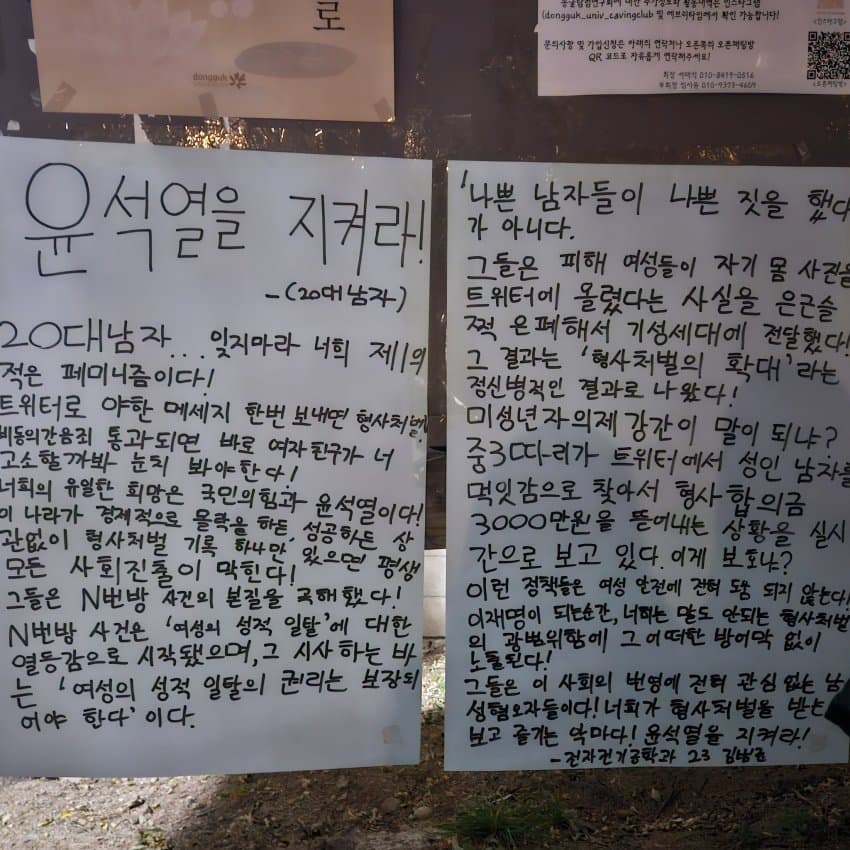 로
dongguk
동굴탐험연구회에 대한 추가정보와 활동내역은 인스타그램
(dongguk_univ_cavingclub 및 에브리타임에서 확인 가능합니다!
문의사항 및 가입신청은 아래의 연락처나 오른쪽의 오픈채팅방
QR 코드로 자유롭게 연락해주세요!
회장 010-8419-0816
부회장 010-9373-4609
<인스타그램>
<오픈채팅방>
윤석열을 지켜라!
-(20대남자)
20대남자... 잊지마라 너희 제1의
적은 페미니즘이다!
트위터로 야한 메세지 한번 보내면 형사처벌!
비동의간음죄 통과되면 바로 여자친구가 너
고소할까봐 눈치 봐야한다!
너희의 유일한 희망은 국민의힘과 윤석열이다!
이 나라가 경제적으로 몰락을 하든, 성공하든 상
관없이 형사처벌 기록 하나만 있으면 평생
모든 사회진출이 막힌다!
그들은 N번방 사건의 본질을 곡해했다!
N번방 사건은 '여성의 성적 일탈'에 대한
열등감으로 시작됐으며, 그 시사하는 바
는 '여성의 성적 일탈의 권리는 보장되
어야 한다'이다.
'나쁜 남자들이 나쁜 짓을 했다
가 아니다.
그들은 피해 여성들이 자기 몸 사진을
트위터에 올렸다는 사실을 은근슬
쩍 은폐해서 기성세대에 전달했다!
그 결과는 '형사처벌의 확대'라는
정신병적인 결과로 나왔다!
미성년자의제강간이 말이 되냐?
중3따리가 트위터에서 성인 남자를
먹잇감으로 찾아서 형사합의금
3000만원을 뜯어내는 상황을 실시
간으로 보고 있다. 이게 보호냐?
이런 정책들은 여성 안전에 전혀 도움 되지 않는다!
이재명이 되는순간, 너희는 말도 안되는 형사처벌
의 광범위함에 그 어떠한 방어막 없이
노출된다!
그들은 이 사회의 번영에 전혀 관심 없는 남
성혐오자들이다! 너희가 형사처벌을 받는
보고 즐기는 악마다! 윤석열을 지켜라!
-전자전기공학과 23